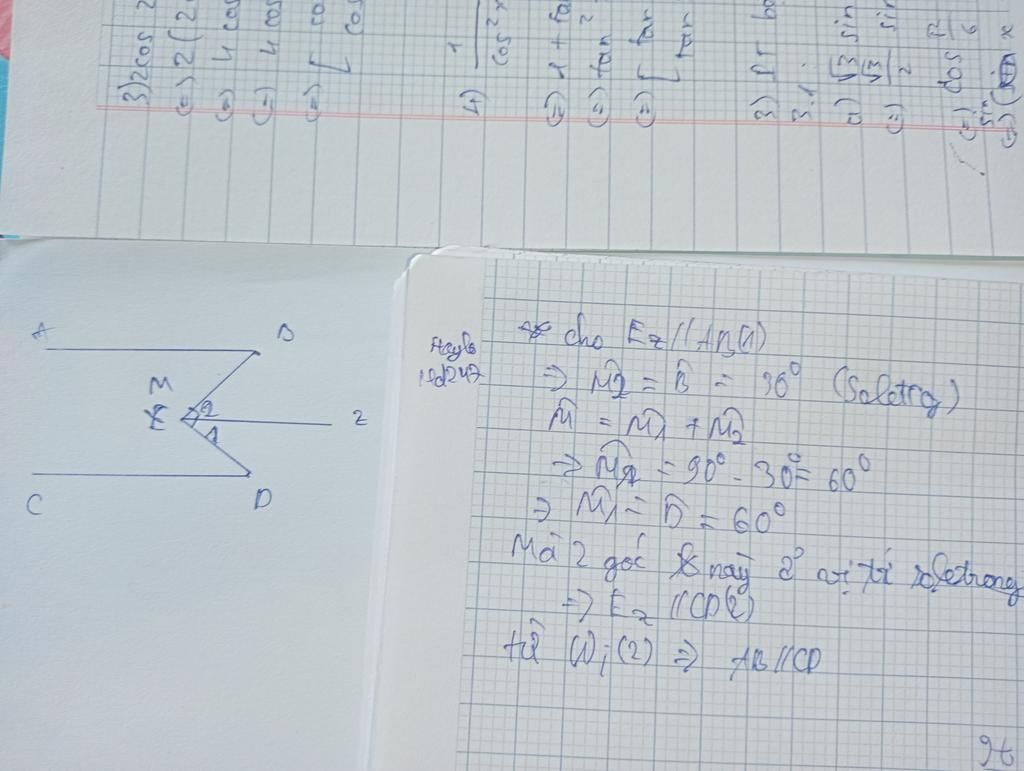 3) 2cos 2
(=) 2(2
(=) 4 cos
(=) 4 cos
(=) [ co
cos
4) 1
cos²x
(=) 1 + ta
(=) tan²
(=) [ tan
tan
3.1
√3 sin
√3
2
sin
(=) cos π/6
(=) sin x
A
B
M
E
2
1
z
C
D
cho Ez // AB (1)
=> M2 = B = 30° (Soletrg)
M = M1 + M2
=> M1 = 90° - 30° = 60°
=> M1 = D = 60°
Mà 2 góc này ở vị trí soletrong
=> Ez // CD (2)
từ (1); (2) => AB // CD